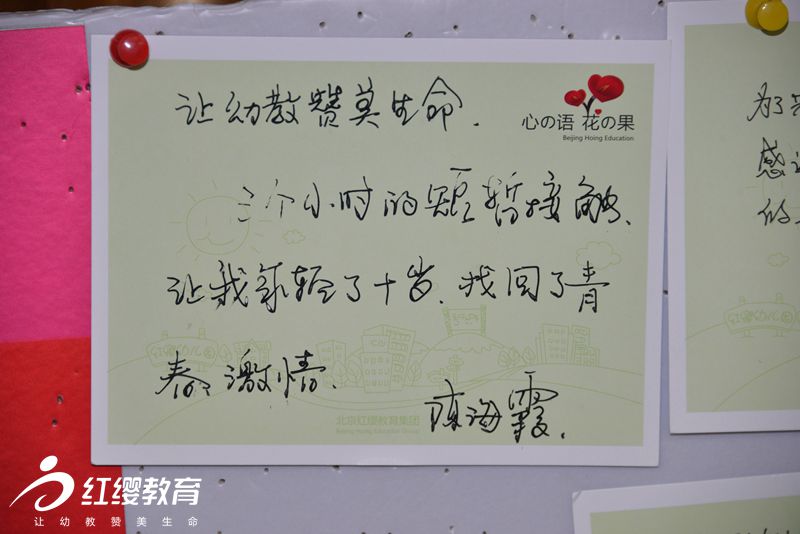 让幼教赞美生命.
心の语 花の果
Beijing Hoing Education
三个小时的短暂接触、
让我年轻了十岁、找回了青
春、激情、
陈海霞.
红缨幼儿园
北京红缨教育集团
Beijing Hoing Education Group
为了
感
的
红缨幼儿园
红缨教育
让幼教赞美生命